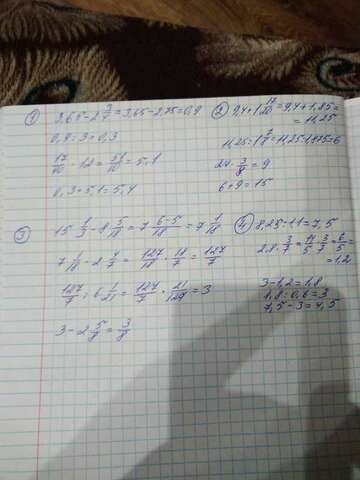 1) 3,65-2 3/4=3,65-2,75=0,9
0,9:3=0,3
17/40 · 12=51/10=5,1
0,3+5,1=5,4
2) 9,4+1 17/20=9,4+1,85=
=11,25
11,25:1 7/8=11,25:1,875=6
24 · 3/8=9
6+9=15
3) 15 1/3-8 5/18=7 6-5/18=7 1/18
7 1/18 · 2 4/7=127/18 · 18/7=127/7
127/7:6 1/21=127/7 · 21/127=3
3-2 5/8=3/8
4) 8,25:1,1=7,5
2,8 · 3/7=14/5 · 3/7=6/5=
=1,2
3-1,2=1,8
1,8:0,6=3
7,5-3=4,5